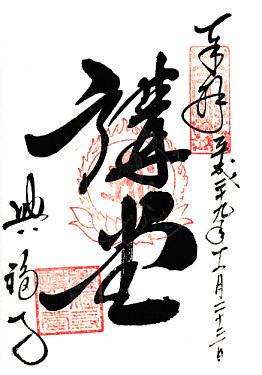 奉拝
平成二十九年十一月二十三日
講堂
興福寺